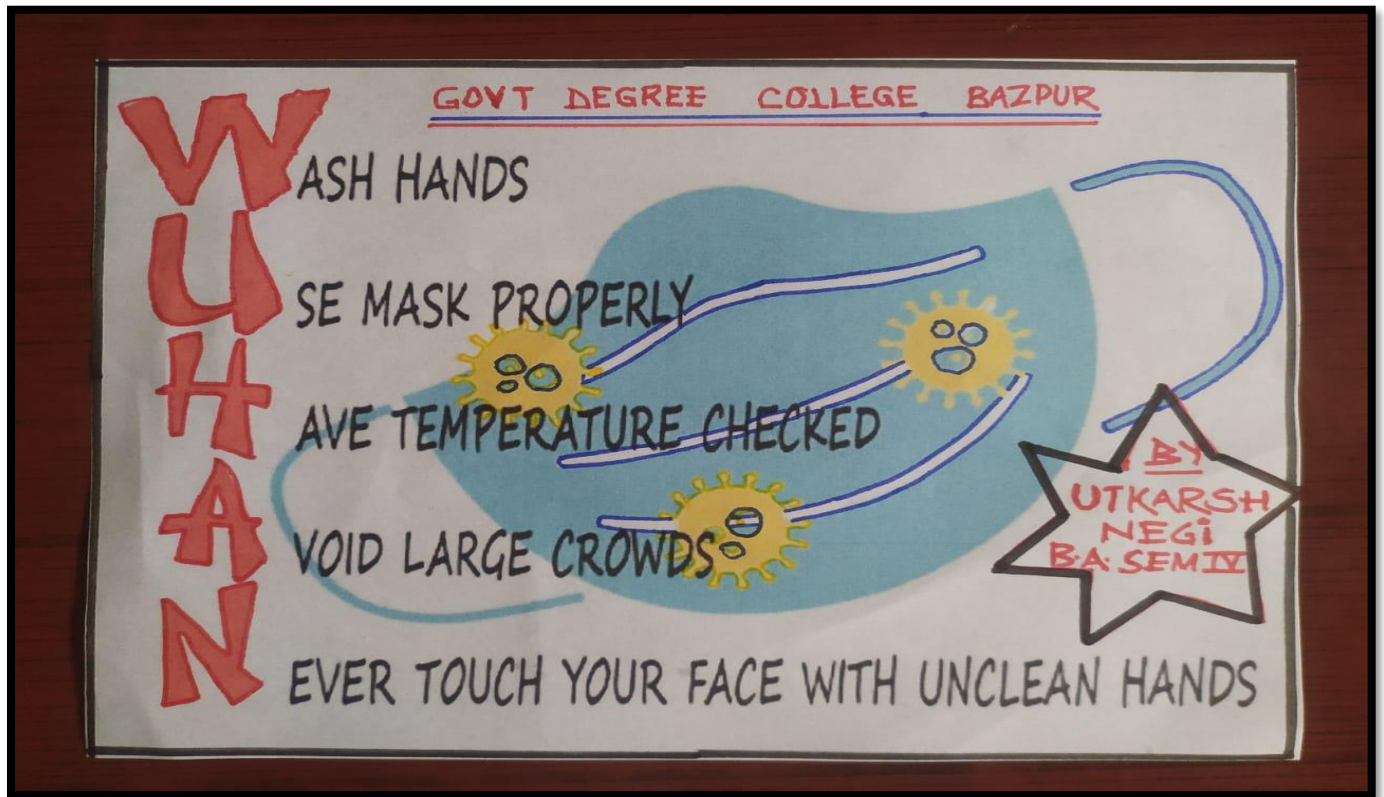 GOVT DEGREE COLLEGE BAZPUR
WASH HANDS
USE MASK PROPERLY
HAVE TEMPERATURE CHECKED
AVOID LARGE CROWDS
NEVER TOUCH YOUR FACE WITH UNCLEAN HANDS
BY
UTKARSH
NEGi
B.A. SEM IV